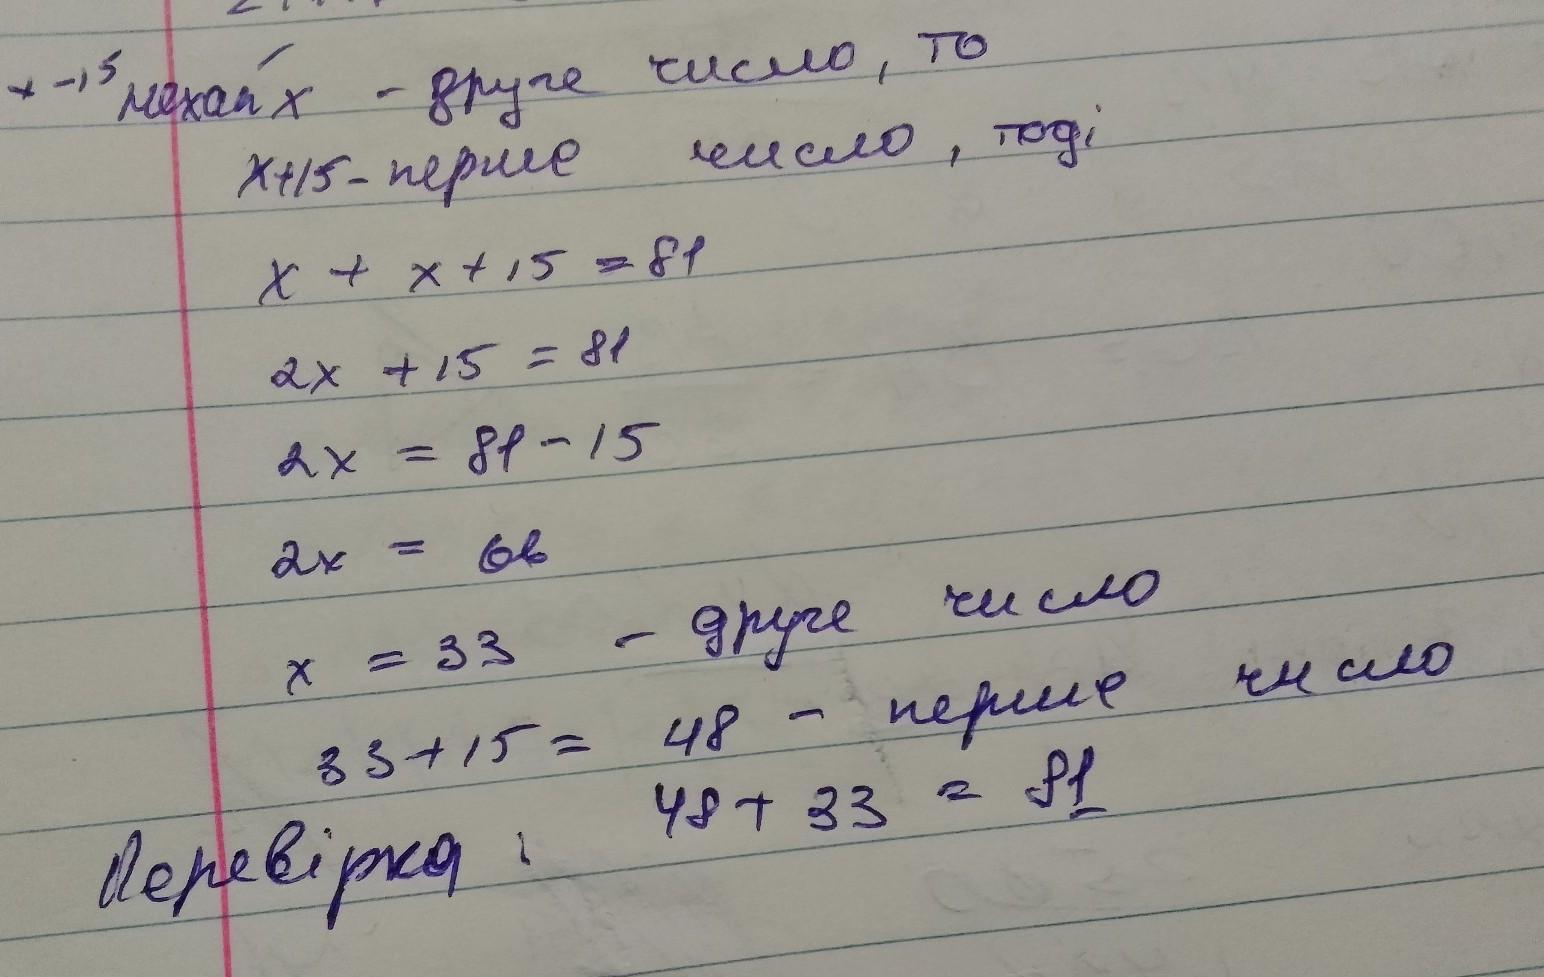 x-15
нехай x - друге число, то
x+15 - перше число, тоді
x + x + 15 = 81
2x + 15 = 81
2x = 81 - 15
2x = 66
x = 33 - друге число
33 + 15 = 48 - перше число
48 + 33 = 81
Перевірка :